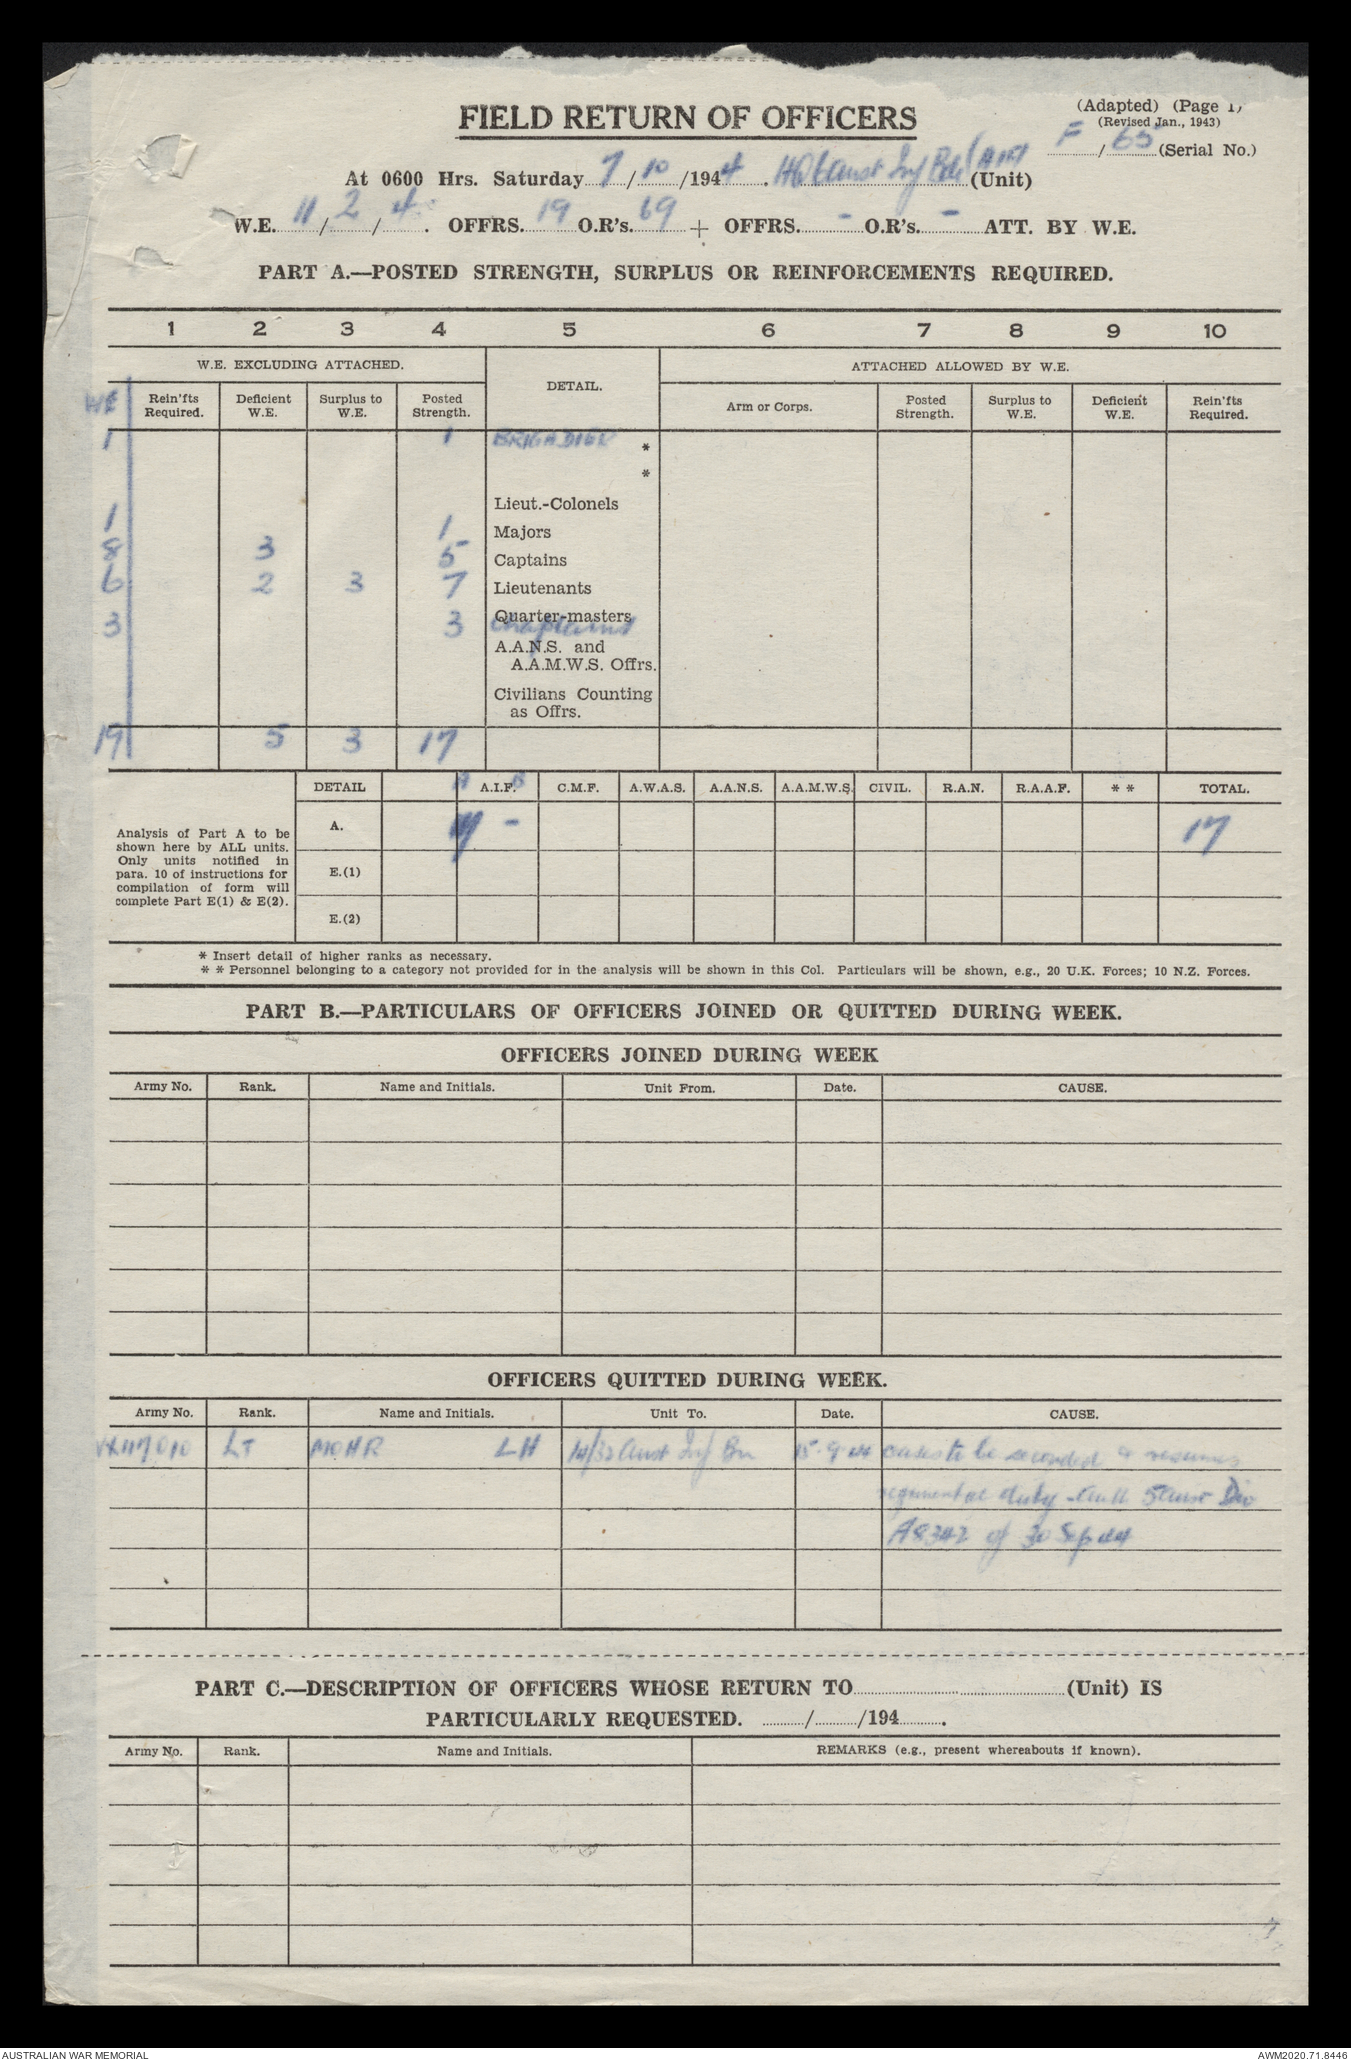 (Adapted) (Page 1)
(Revised Jan., 1943)
FIELD RETURN OF OFFICERS
F / 65 (Serial No.)
At 0600 Hrs. Saturday 7/10/1944. HQ 6 Aust Inf Bde (AIF) (Unit)
W.E. 11/2/4. OFFRS. 19 O.R's. 69 + OFFRS. - O.R's. - ATT. BY W.E.
PART A.—POSTED STRENGTH, SURPLUS OR REINFORCEMENTS REQUIRED.
1 2 3 4 5 6 7 8 9 10
W.E. EXCLUDING ATTACHED. DETAIL. ATTACHED ALLOWED BY W.E.
WE Rein'fts Required. Deficient W.E. Surplus to W.E. Posted Strength. Arm or Corps. Posted Strength. Surplus to W.E. Deficient W.E. Rein'fts Required.
1 1 BRIGADIER *
*
Lieut.-Colonels
1 1 Majors
8 3 5 Captains
6 2 3 7 Lieutenants
3 3 Quarter-masters Chaplains
A.A.N.S. and
A.A.M.W.S. Offrs.
Civilians Counting
as Offrs.
19 5 3 17
DETAIL A A.I.F. B C.M.F. A.W.A.S. A.A.N.S. A.A.M.W.S. CIVIL. R.A.N. R.A.A.F. * * TOTAL.
A. 17 - 17
Analysis of Part A to be
shown here by ALL units.
Only units notified in
para. 10 of instructions for
compilation of form will
complete Part E(1) & E(2).
E.(1)
E.(2)
* Insert detail of higher ranks as necessary.
* * Personnel belonging to a category not provided for in the analysis will be shown in this Col. Particulars will be shown, e.g., 20 U.K. Forces; 10 N.Z. Forces.
PART B.—PARTICULARS OF OFFICERS JOINED OR QUITTED DURING WEEK.
OFFICERS JOINED DURING WEEK
Army No. Rank. Name and Initials. Unit From. Date. CAUSE.
OFFICERS QUITTED DURING WEEK.
Army No. Rank. Name and Initials. Unit To. Date. CAUSE.
VX117010 LT MOHR LH 14/32 Aust Inf Bn 15-9-44 ceases to be seconded & resumes
regimental duty Auth 5 Aust Div
A8342 of 30 Sep 44
PART C.—DESCRIPTION OF OFFICERS WHOSE RETURN TO (Unit) IS
PARTICULARLY REQUESTED. / /194 .
Army No. Rank. Name and Initials. REMARKS (e.g., present whereabouts if known).
AUSTRALIAN WAR MEMORIAL AWM2020.71.8446